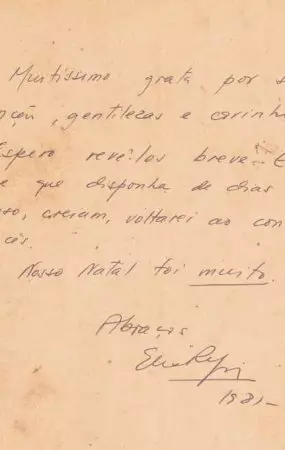 Muitíssimo grata por s
nção, gentilezas e carinh
Espero revê-los breve. E
e que disponha de dias
so, creiam, voltarei ao con
cês.
Nosso Natal foi muito.
Abraços
1981-